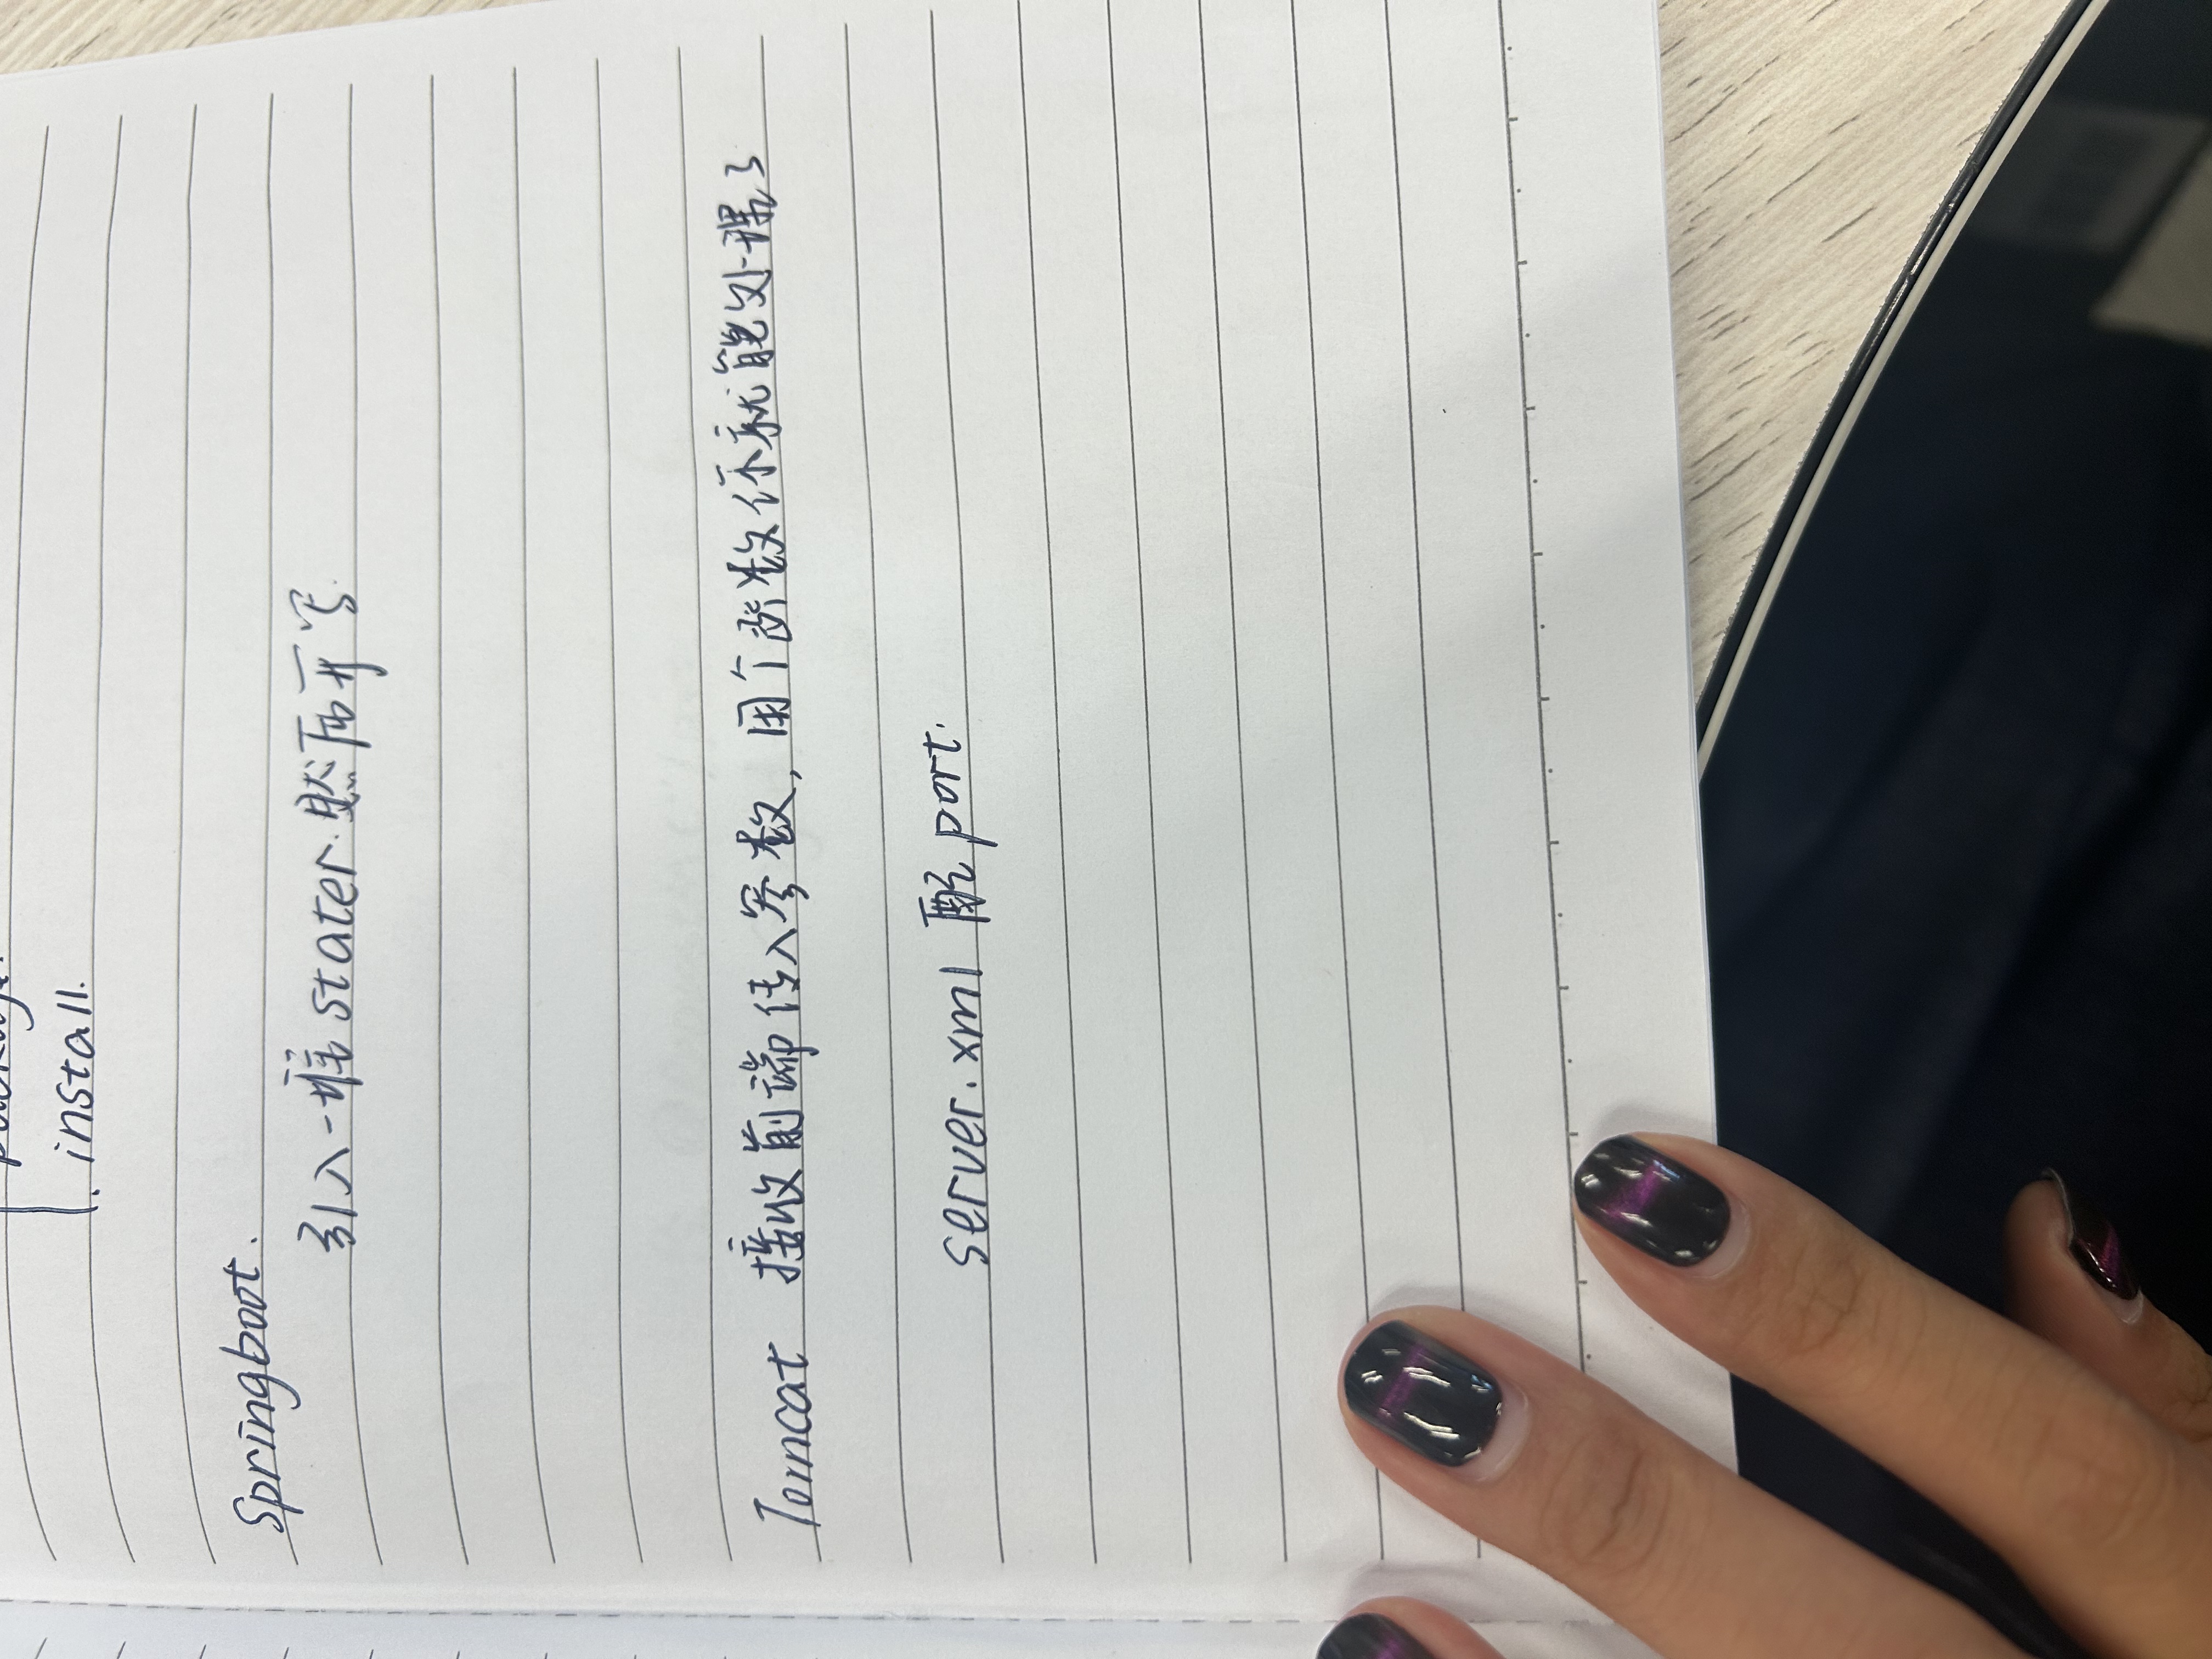 package.
install.
Springboot.
引入一堆 stater. 然后开写.
Tomcat 接收前端传入参数, 用个函数你就能处理了
server.xml 配 port.